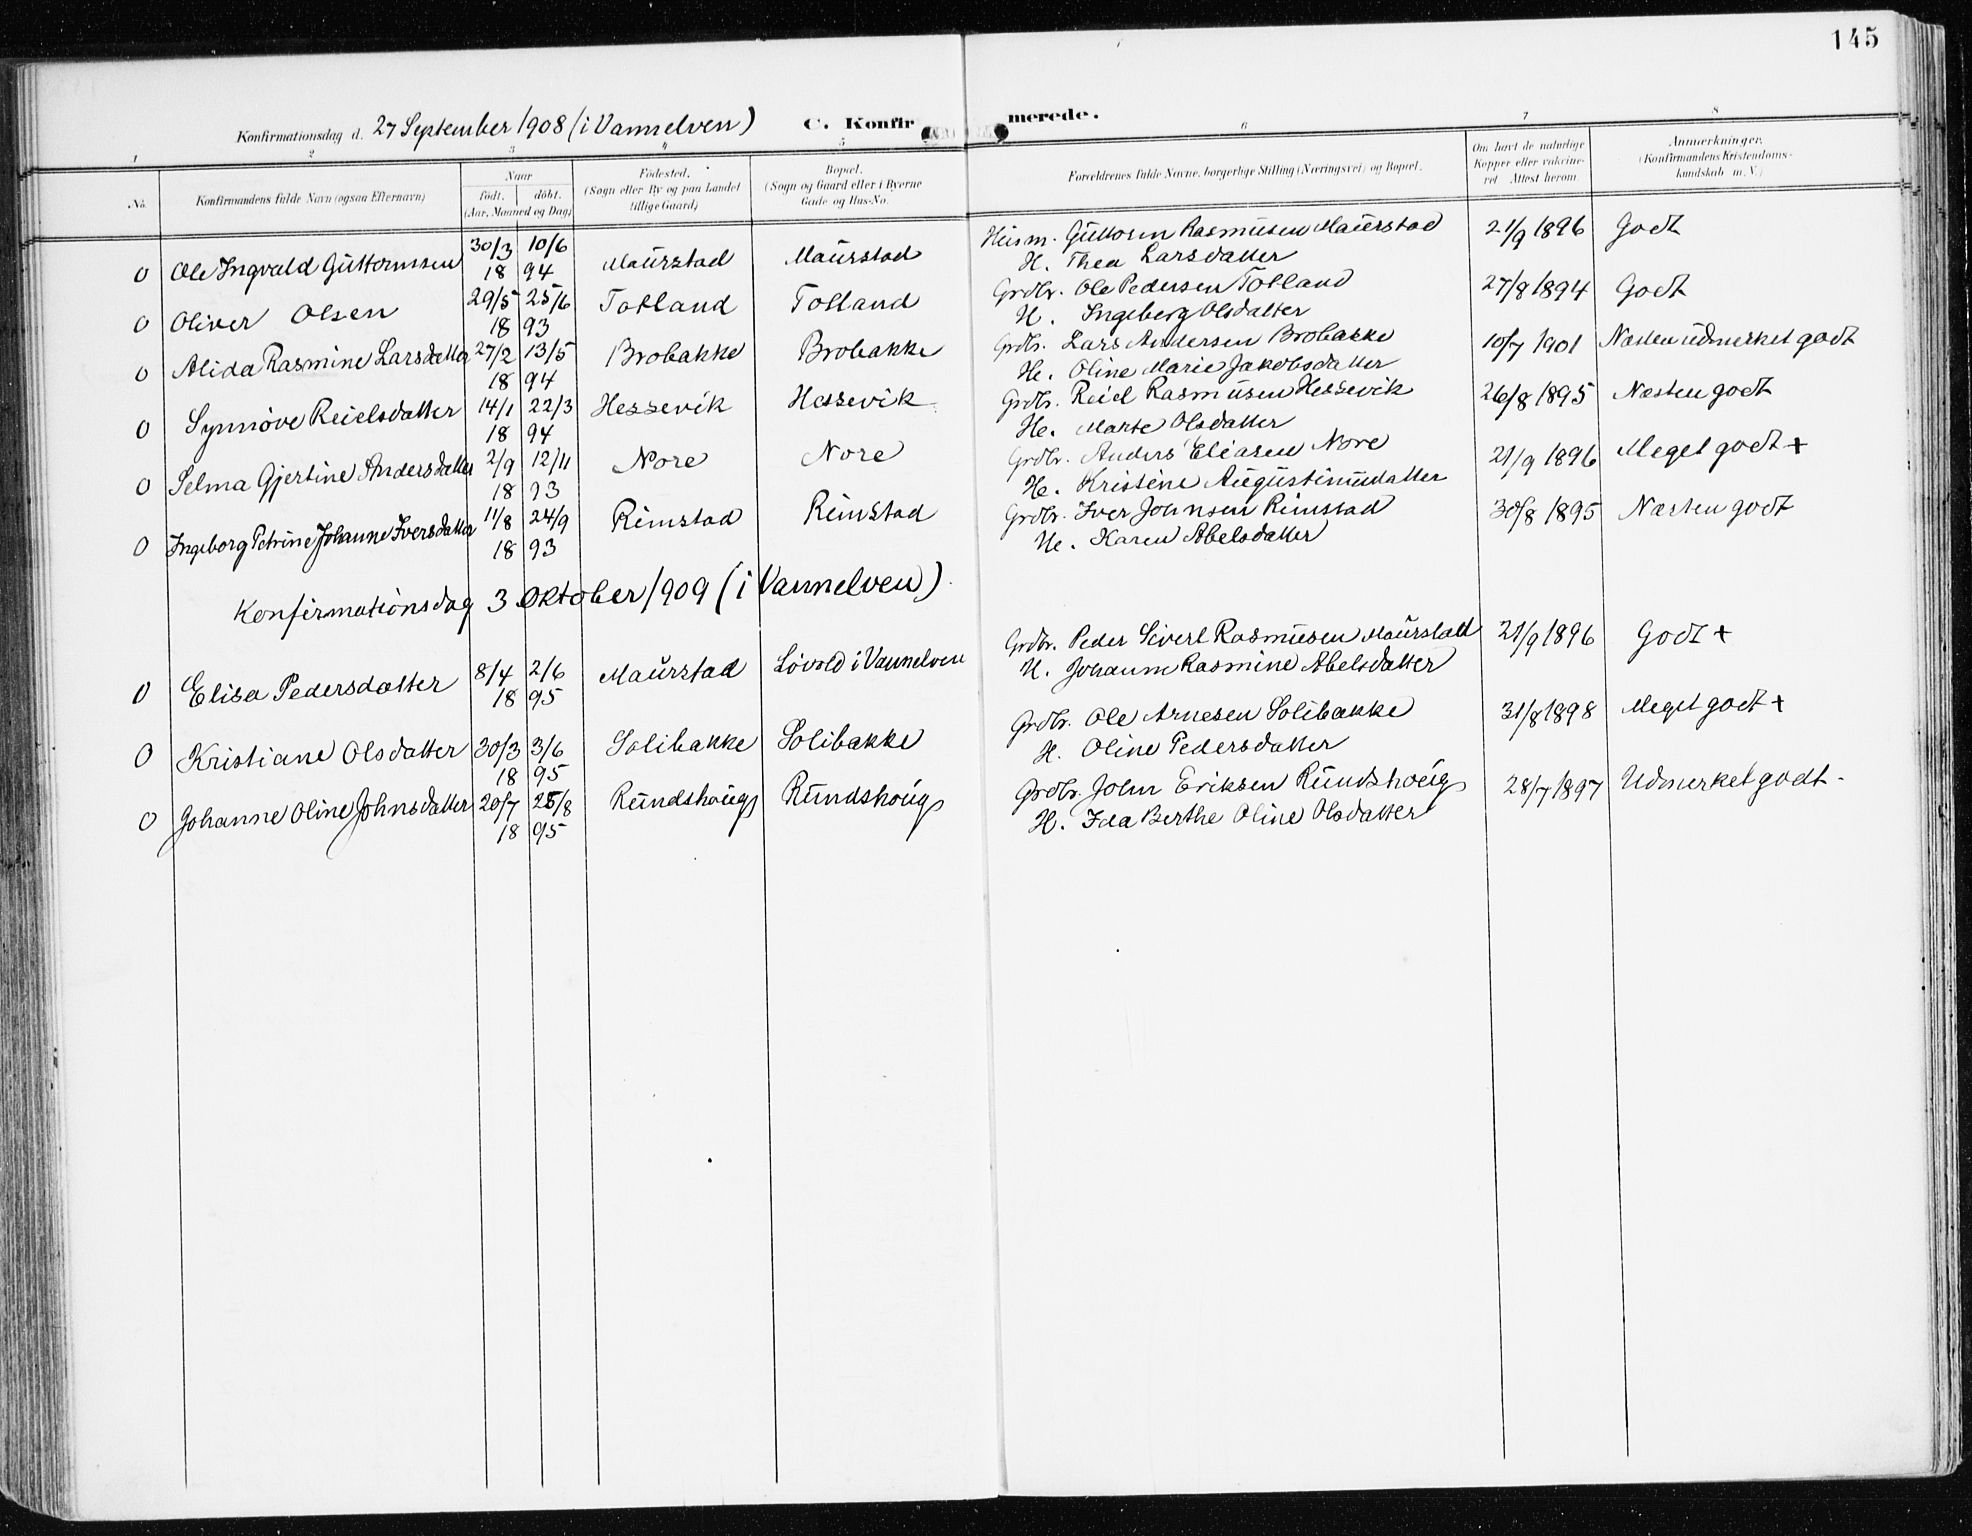 145
Konfirmationsdag d. 27 September 1908 (i Vannelven) C. Konfirmerede.
1 2 3 4 5 6 7 8
No.
Konfirmandens fulde Navn (ogsaa Efternavn)
Naar
födt. döbt.
(Aar, Maaned og Dag)
Födested.
(Sogn eller By og paa Landet
tillige Gaard)
Bopæl.
(Sogn og Gaard eller i Byerne
Gade og Hus-No.
Forældrenes fulde Navne, borgerlige Stilling (Næringsvei) og Bopæl.
Om havt de naturlige
Kopper eller vakcine-
ret Attest herom.
Anmærkninger.
(Konfirmandens Kristendoms-
kundskab m. V.)
0 Ole Ingvald Guttormsen 30/3 10/6 Maurstad Maurstad Husm. Guttorm Rasmusen Maurstad 21/9 1896 Godt
18 94 H. Thea Larsdatter
0 Oliver Olsen 29/5 25/6 Totland Totland Grdbr. Ole Pedersen Totland 27/8 1894 Godt
18 93 H. Ingeborg Olsdatter
0 Alida Rasmine Larsdatter 27/2 13/5 Brobakke Brobakke Grdbr. Lars Andersen Brobakke 10/7 1901 Næsten udmerket godt
18 94 H. Oline Marie Jakobsdatter
0 Synnöve Reielsdatter 14/1 22/3 Hessevik Hessevik Grdbr. Reiel Rasmusen Hessevik 26/8 1895 Næsten godt
18 94 H. Marte Olsdatter
0 Selma Gjertine Andersdatter 2/9 12/11 Nore Nore Grdbr. Anders Eliasen Nore 21/9 1896 Meget godt +
18 93 H. Kristine Augustinusdatter
0 Ingeborg Petrine Johanne Iversdatter 11/8 24/9 Rimstad Rimstad Grdbr. Iver Johnsen Rimstad 30/8 1895 Næsten godt
18 93 H. Karen Abelsdatter
Konfirmationsdag 3 Oktober 1909 (i Vannelven).
0 Elisa Pedersdatter 8/4 2/6 Maurstad Lövold i Vannelven Grdbr. Peder Sivert Rasmusen Maurstad 21/9 1896 Godt +
18 95 H. Johanna Rasmine Abelsdatter
0 Kristiane Olsdatter 30/3 3/6 Solibakke Solibakke Grdbr. Ole Arnesen Solibakke 31/8 1898 Meget godt +
18 95 H. Oline Pedersdatter
0 Johanne Oline Johnsdatter 20/7 25/8 Rundshoug Rundshoug Grdbr. John Eriksen Rundshoug 28/7 1897 Udmerket godt -
18 95 H. Ida Berthe Oline Olsdatter